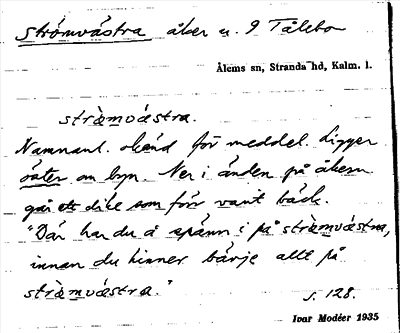 Strömvästra åker u. 9 Tålebo
Ålems sn, Stranda hd, Kalm. l.
stràmvástra.
Namnanl. okänd för meddel. Ligger
öster om byn. Ner i änden på åkern
går ett dike som förr varit bäck.
"Där har du å spänn i på stràmvástra,
innan du hinner bärje allt på
stràmvástra."
s. 128.
Ivar Modéer 1935